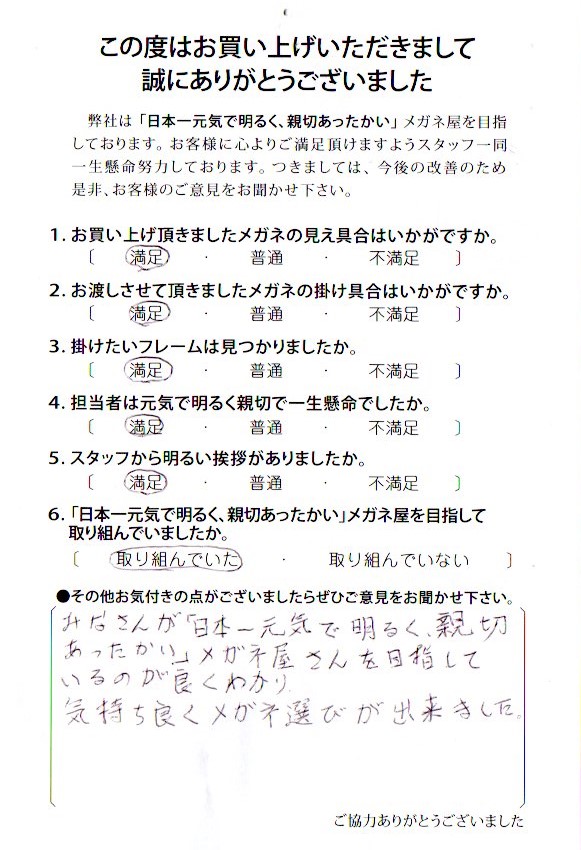 この度はお買い上げいただきまして
誠にありがとうございました
弊社は「日本一元気で明るく、親切あったかい」メガネ屋を目指
しております。お客様に心よりご満足頂けますようスタッフ一同
一生懸命努力しております。つきましては、今後の改善のため
是非、お客様のご意見をお聞かせ下さい。
1. お買い上げ頂きましたメガネの見え具合はいかがですか。
〔 満足 ・ 普通 ・ 不満足 〕
2. お渡しさせて頂きましたメガネの掛け具合はいかがですか。
〔 満足 ・ 普通 ・ 不満足 〕
3. 掛けたいフレームは見つかりましたか。
〔 満足 ・ 普通 ・ 不満足 〕
4. 担当者は元気で明るく親切で一生懸命でしたか。
〔 満足 ・ 普通 ・ 不満足 〕
5. スタッフから明るい挨拶がありましたか。
〔 満足 ・ 普通 ・ 不満足 〕
6.「日本一元気で明るく、親切あったかい」メガネ屋を目指して
取り組んでいましたか。
〔 取り組んでいた ・ 取り組んでいない 〕
●その他お気付きの点がございましたらぜひご意見をお聞かせ下さい。
みなさんが「日本一元気で明るく、親切
あったかい」メガネ屋さんを目指して
いるのが良くわかり
気持ち良くメガネ選びが出来ました。
ご協力ありがとうございました